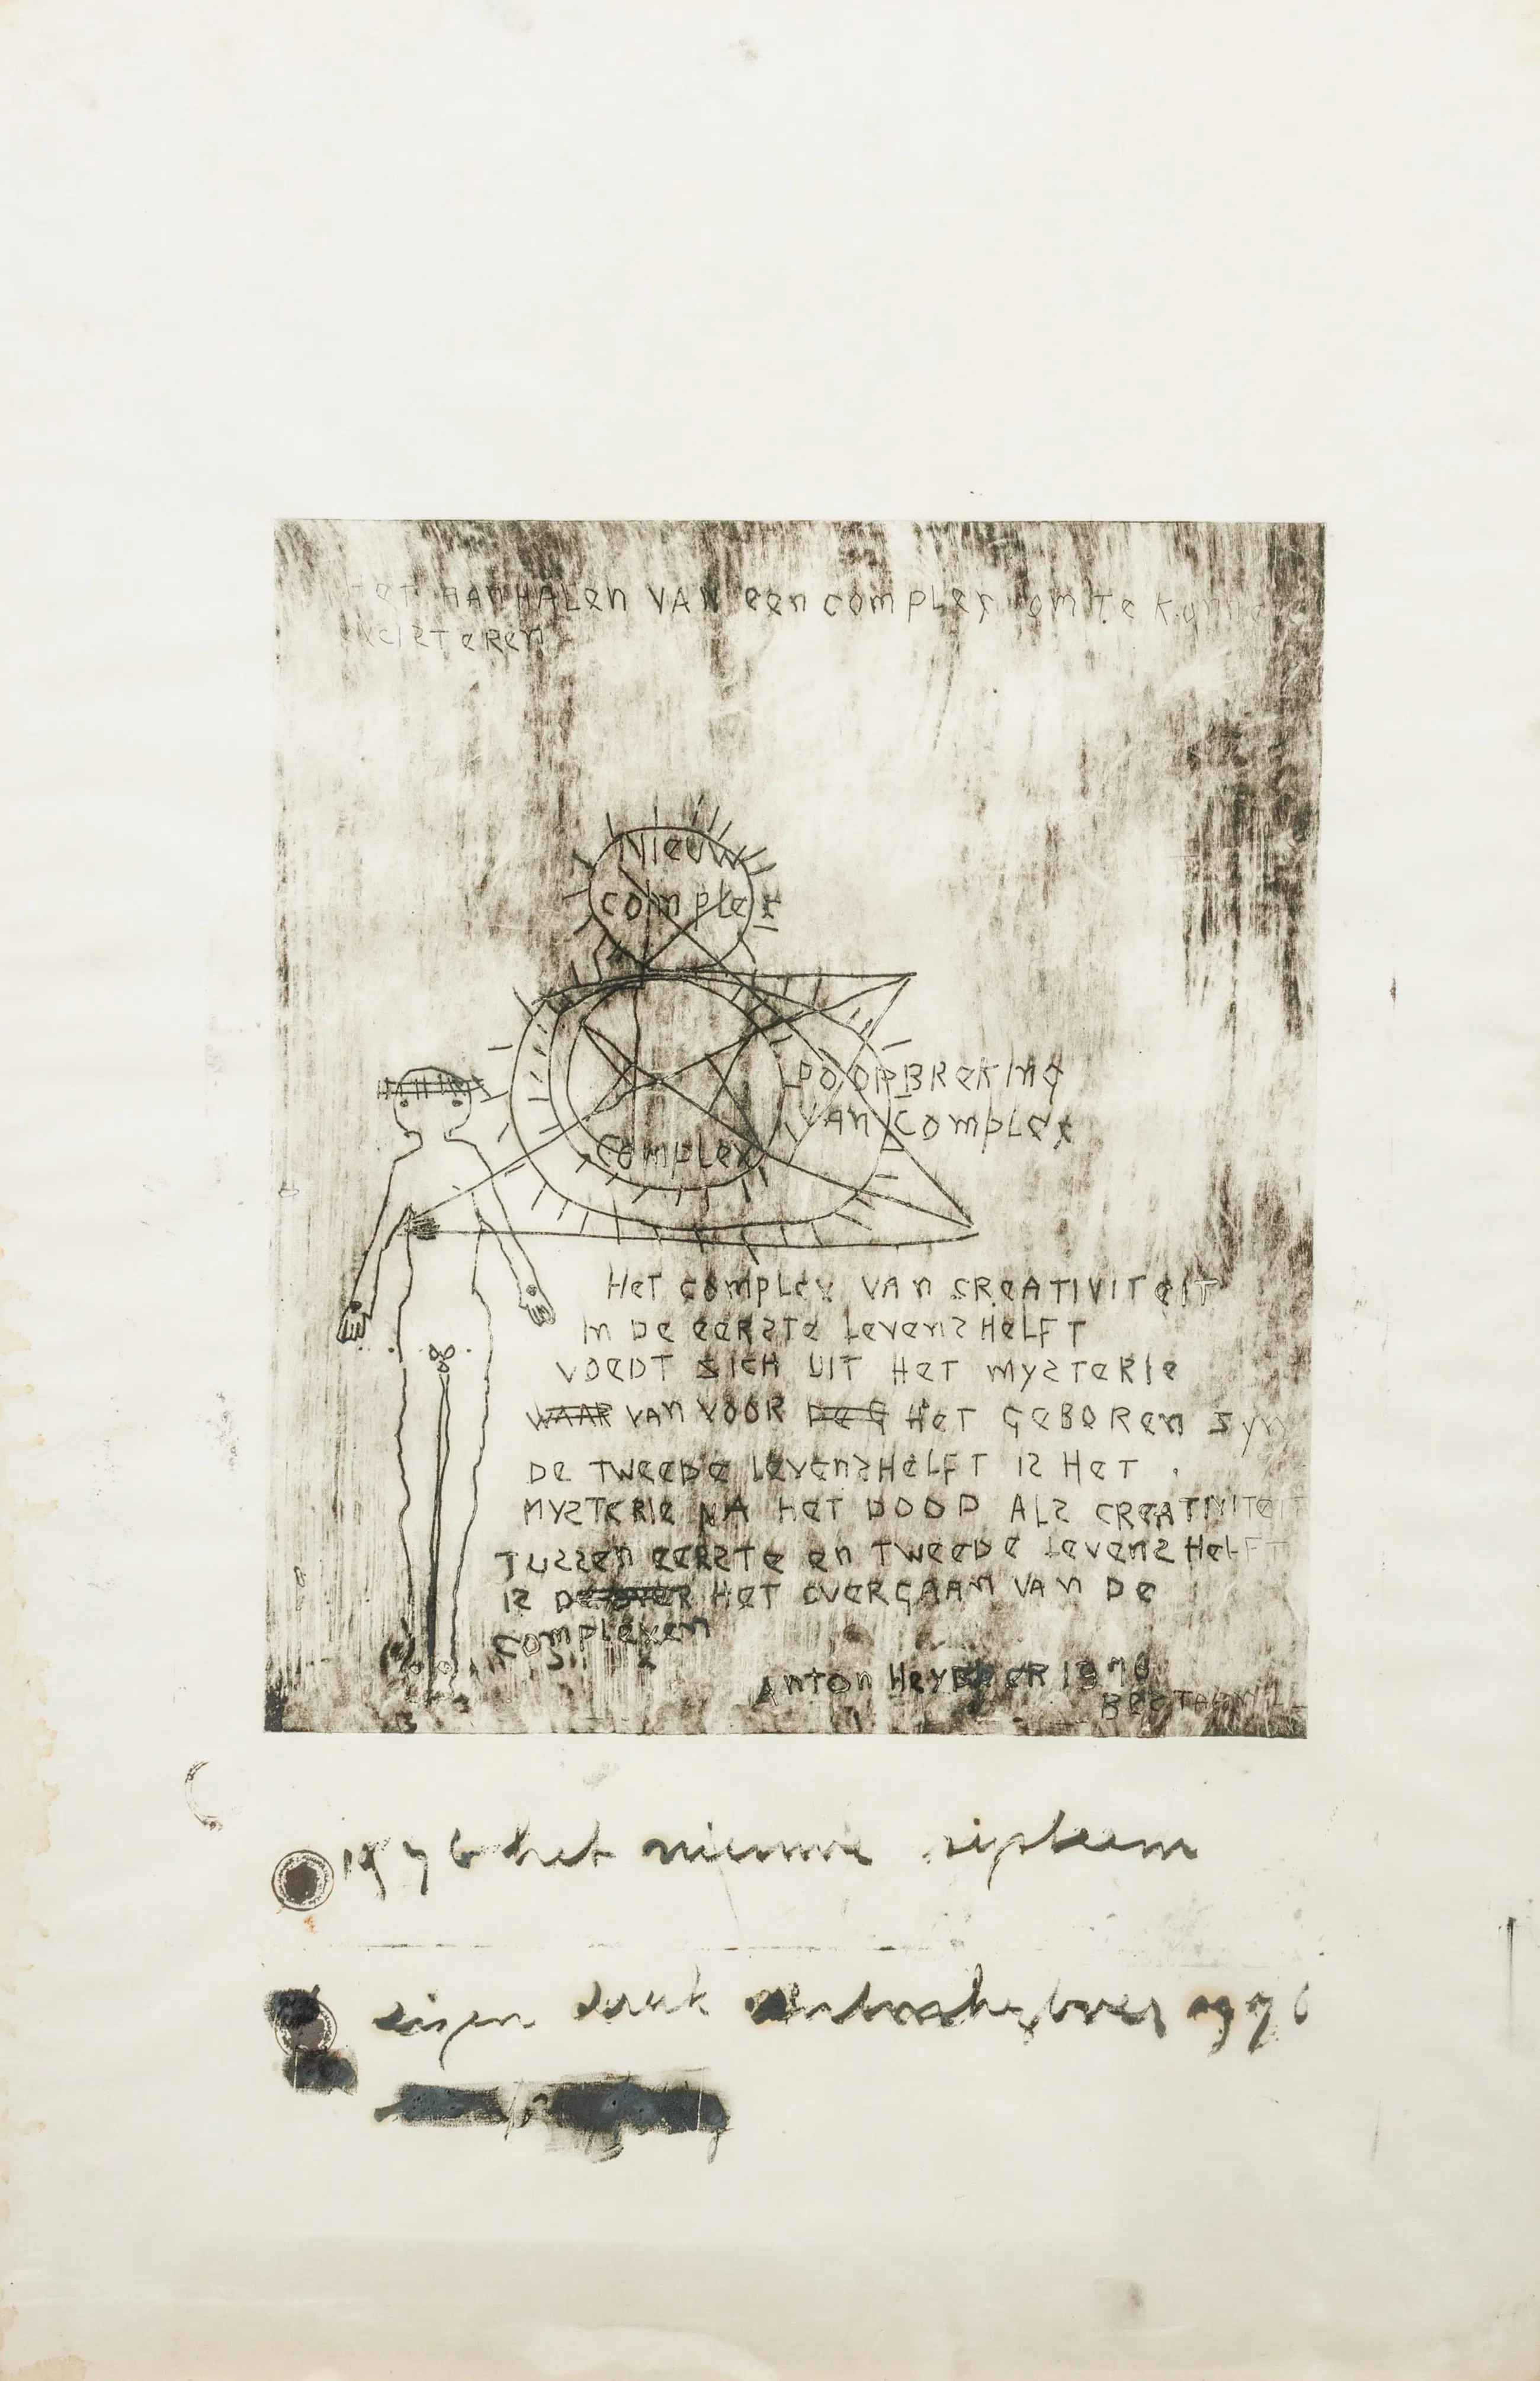 HeT AANHALen VAN een complex om Te Kunn
exisTeRen
Nieuw
complex
DOORBReKIng
VAN Complex
Complex
HeT complex VAn CReATIVITeIT
In De eeRsTe LevensHeLFT
VoeDT SICH UIT HeT mysTeRIe
WAAR VAn VOOR De G HeT GeBORen Syn
De TweeDe LevensHeLFT Is HeT
MYsTeRIe NA HeT DOOD ALs CReATIVITeIT
Tussen eeRsTe en TweeDe LevensHeLFT
Is HeT OVeRGAAn VAn De
Complexen
AnTon HeyBoeR 1976
1976 het nieuwe sisteem
eigen druk anton heyboer 1976